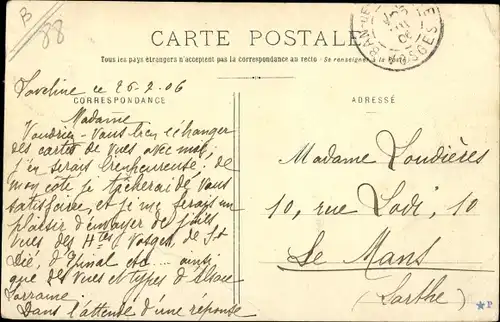 B
88
CARTE POSTALE
Tous les pays étrangers n'acceptent pas la correspondance au recto - Se renseigner à la Poste
BAN-DE
VOSGES
Laveline ce 26-2-06
CORRESPONDANCE
ADRESSÉ
Madame
Voudriez-vous bien échanger
des cartes de vues avec moi,
j'en serais bienheureuse; de
mon côté je tâcherai de vous
satisfaire, et je me ferais un
plaisir d'envoyer de jolies
vues des Htes Vosges, de St
Dié, d'Epinal etc .... ainsi
que des vues et types d'Alsace
Lorraine
Dans l'attente d'une réponse
Madame Loudières
10, rue Lodi, 10
Le Mans
(Sarthe)
★P